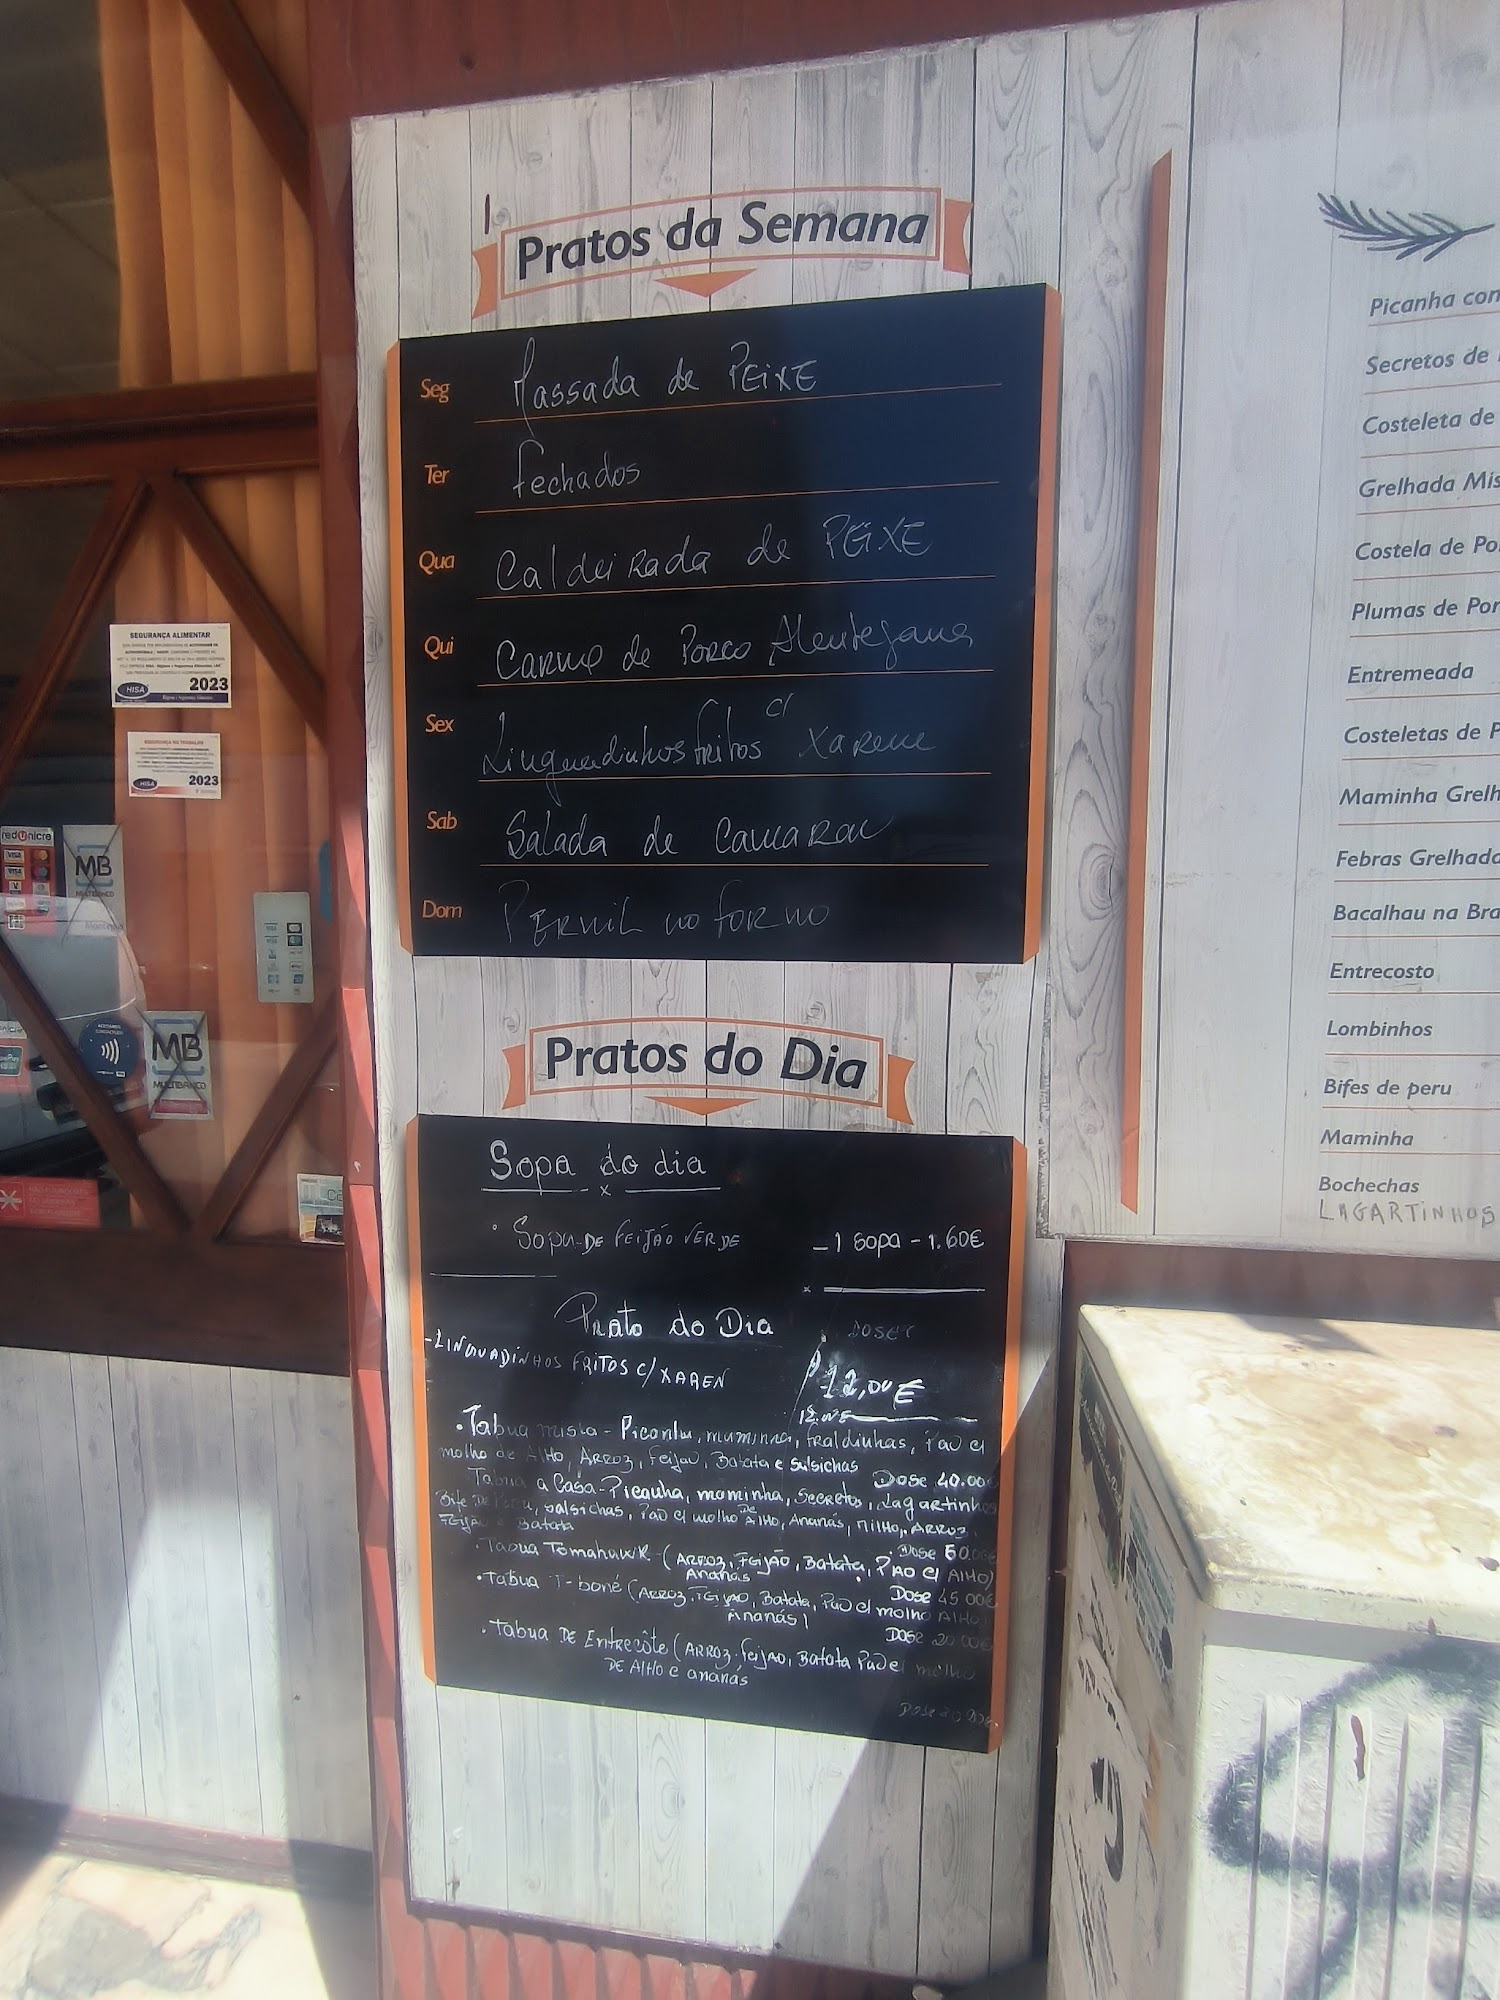 Pratos da Semana
Seg Massada de PEiXE
Ter fechados
Qua Caldeirada de PEiXE
Qui Carne de Porco Alentejana
Sex Linguadinhos fritos c/ Xarem
Sab Salada de Camarão
Dom PERNiL no forno
Pratos do Dia
Sopa do dia
x
• Sopa DE FEIJÃO VERDE – 1 Sopa – 1.60€
Prato do Dia
-LINGUADINHOS FRITOS C/ XAREN
12,00€
• Tabua mista - Picanha, maminha, fraldinhas, Pao c/
molho de AlHO, ARROZ, Feijao, Batata e Salsichas
Dose 40.00€
Tabua a Casa - Picanha, maminha, Secretos, Lagartinhos
Bife De Peru, salsichas, Pao c/ molho DE AlHO, Ananás, MilHO, ARROZ,
FEIJão e Batata
• Tabua Tomahawk (ARROZ, FEIJÃO, Batata, PAO c/ AlHO)
Ananás
• Tabua T-boné (ARROZ, FEIJAO, Batata, Pao c/ molho AlHO,
Ananás)
• Tabua DE Entrecôte (ARROZ, feijao, Batata Pao c/ molho
DE AlHO e ananás
Picanha
Secretos de
Costeleta de
Grelhada
Costela de
Plumas de
Entremeada
Costeletas de
Maminha
Febras
Bacalhau na
Entrecosto
Lombinhos
Bifes de peru
Maminha
Bochechas
LAGARTINHOS
SEGURANÇA ALIMENTAR
HISA 2023
SEGURANÇA NO TRABALHO
HISA 2023
redunicre
VISA
MB
MULTIBANCO
MB
MULTIBANCO